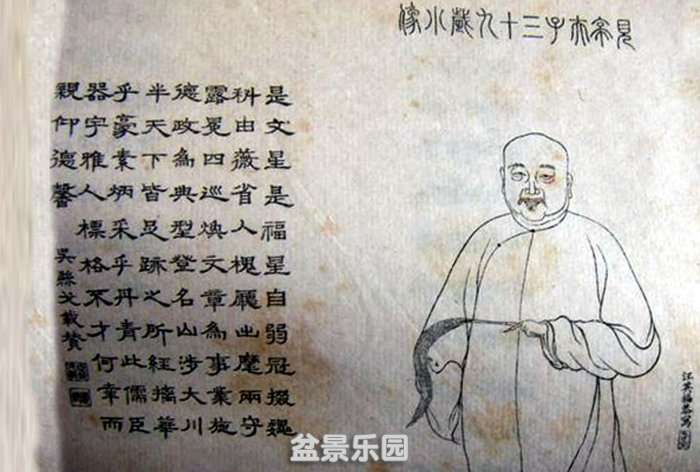 見亭夫子三十九歲小像
是文星是福星自弱冠掇巍
科由薇省入槐廳出麾兩守
露冕四巡煥文章為事業施
德政為典型登名山涉大川
半天下皆足跡之所經摛華
乎豪素炳采乎丹青此儒臣
器宇雅人標格不才何幸而
親仰德馨
吳縣戈載贊
汪英福恭寫
盆景乐园